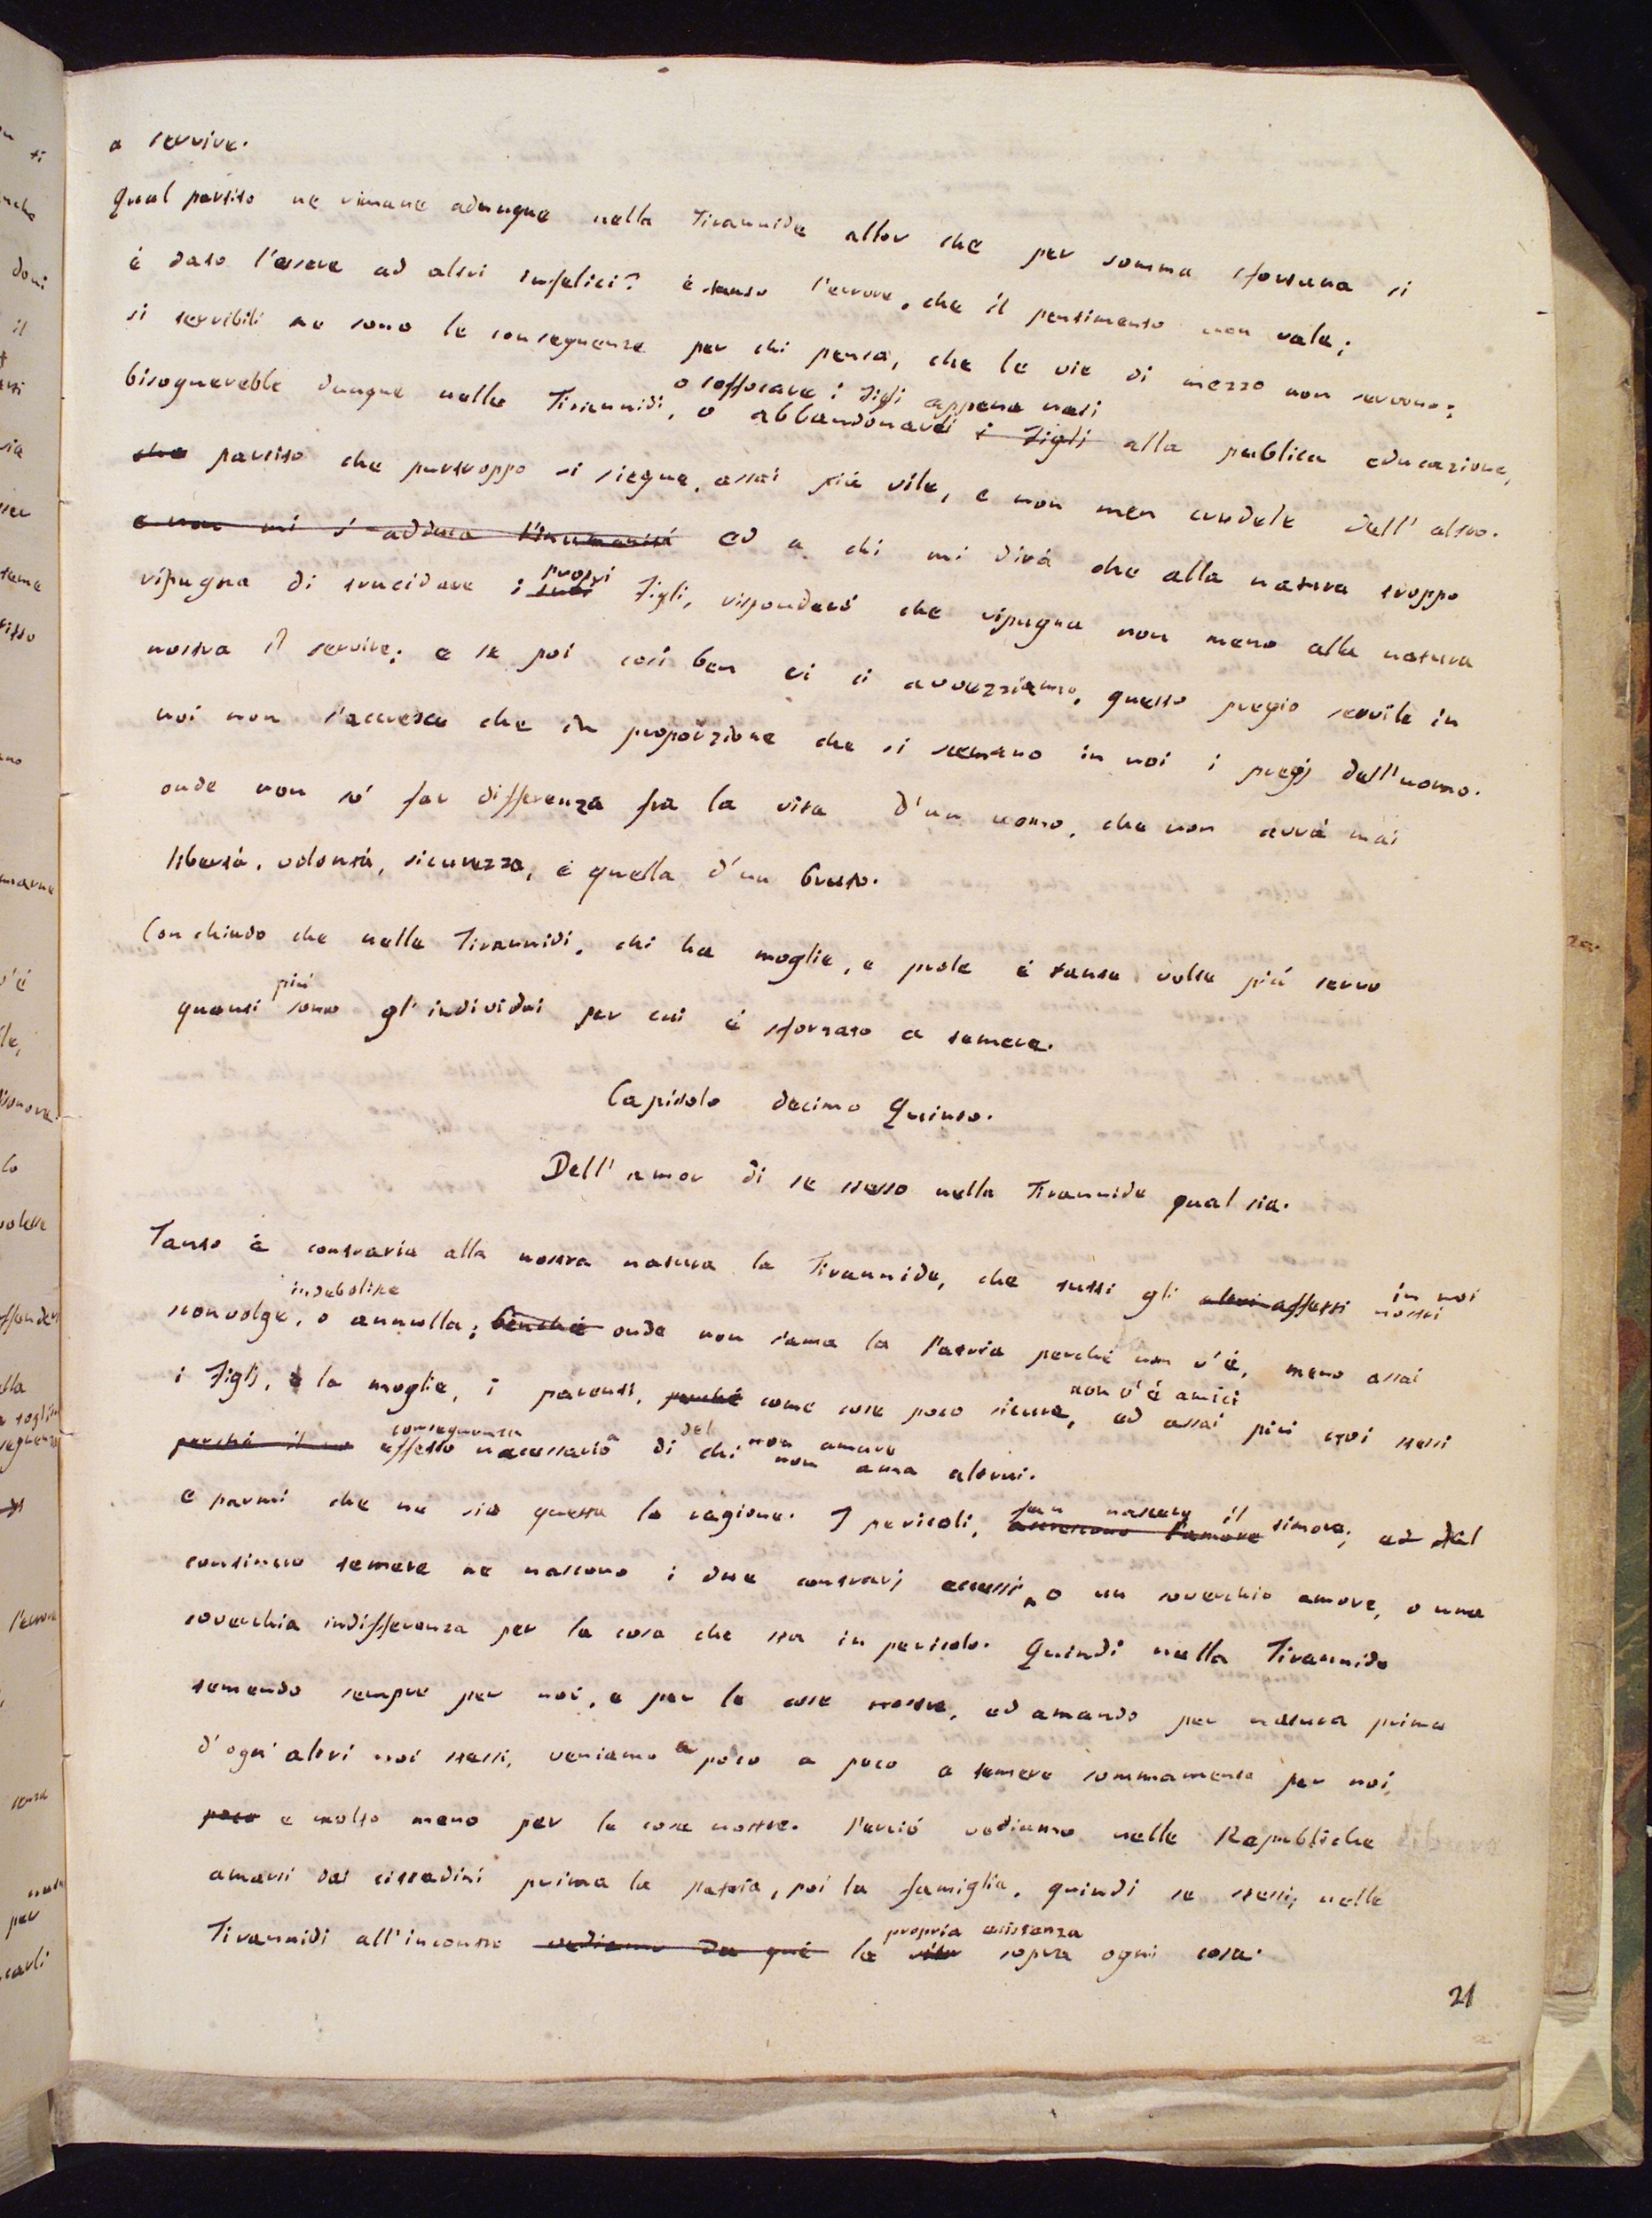 a servire.
Qual partito ne rimane adunque nella Tirannide allor che per somma sfortuna si
è dato l'essere ad altri infelici? è tanto l'errore, che il pentimento non vale;
si terribili ne sono le conseguenze per chi pensa, che le vie di mezzo non servono;
o soffocare i Figli appena nati
bisognerebbe dunque nelle Tirannidi, o abbandonarli i Figli alla publica educazione,
che partito che purtroppo si siegue, assai più vile, e non men crudele dell'altro.
e non mi s'adduca l'inumanità ed a chi mi dirà che alla natura troppo
proprj
ripugna di trucidare i suoi Figli, risponderò che ripugna non meno alla natura
nostra il servire; e se poi così ben ci ci avvezziamo, questo pregio servile in
noi non s'accresce che in proporzione che si scemano in noi i pregj dell'uomo.
onde non so' far differenza fra la vita d'un uomo, che non avrà mai
libertà, volontà, sicurezza, e quella d'un bruto.
Conchiudo che nelle Tirannidi, chi ha moglie, e prole è tante volte più servo
più
quanti sono gl'individui per cui è sforzato a temere.
Capitolo decimo Quinto.
Dell'amor di se stesso nella Tirannide qual sia.
Tanto è contraria alla nostra natura la Tirannide, che tutti gli altri affetti nostri
in noi
indebolisce
sconvolge, o annulla; benchè onde non s'ama la Patria perchè non v'è, meno assai
i Figlj, e la moglie, i parenti, perchè come cose poco sicure, ed assai più noi stessi
non v'è amici
conseguenza del non amare
perchè il effetto necessario di chi non ama altrui.
e parmi che ne sia questa la cagione. I pericoli, accrescono l'amore timore; ed dal
fan nascere il
continuo temere ne nascono i due contrarj eccessi, o un soverchio amore, o una
soverchia indifferenza per la cosa che sta in pericolo. Quindi nella Tirannide
temendo sempre per noi, e per le cose nostre, ed amando per natura prima
d'ogn'altri noi stessi, veniamo a poco a poco a temere sommamente per noi,
poco e molto meno per le cose nostre. Perciò vediamo nelle Republiche
amarsi dai cittadini prima la patria, poi la famiglia, quindi se stessi; nelle
propria esistenza
Tirannidi all'incontro vediamo da più la vita sopra ogni cosa.
21